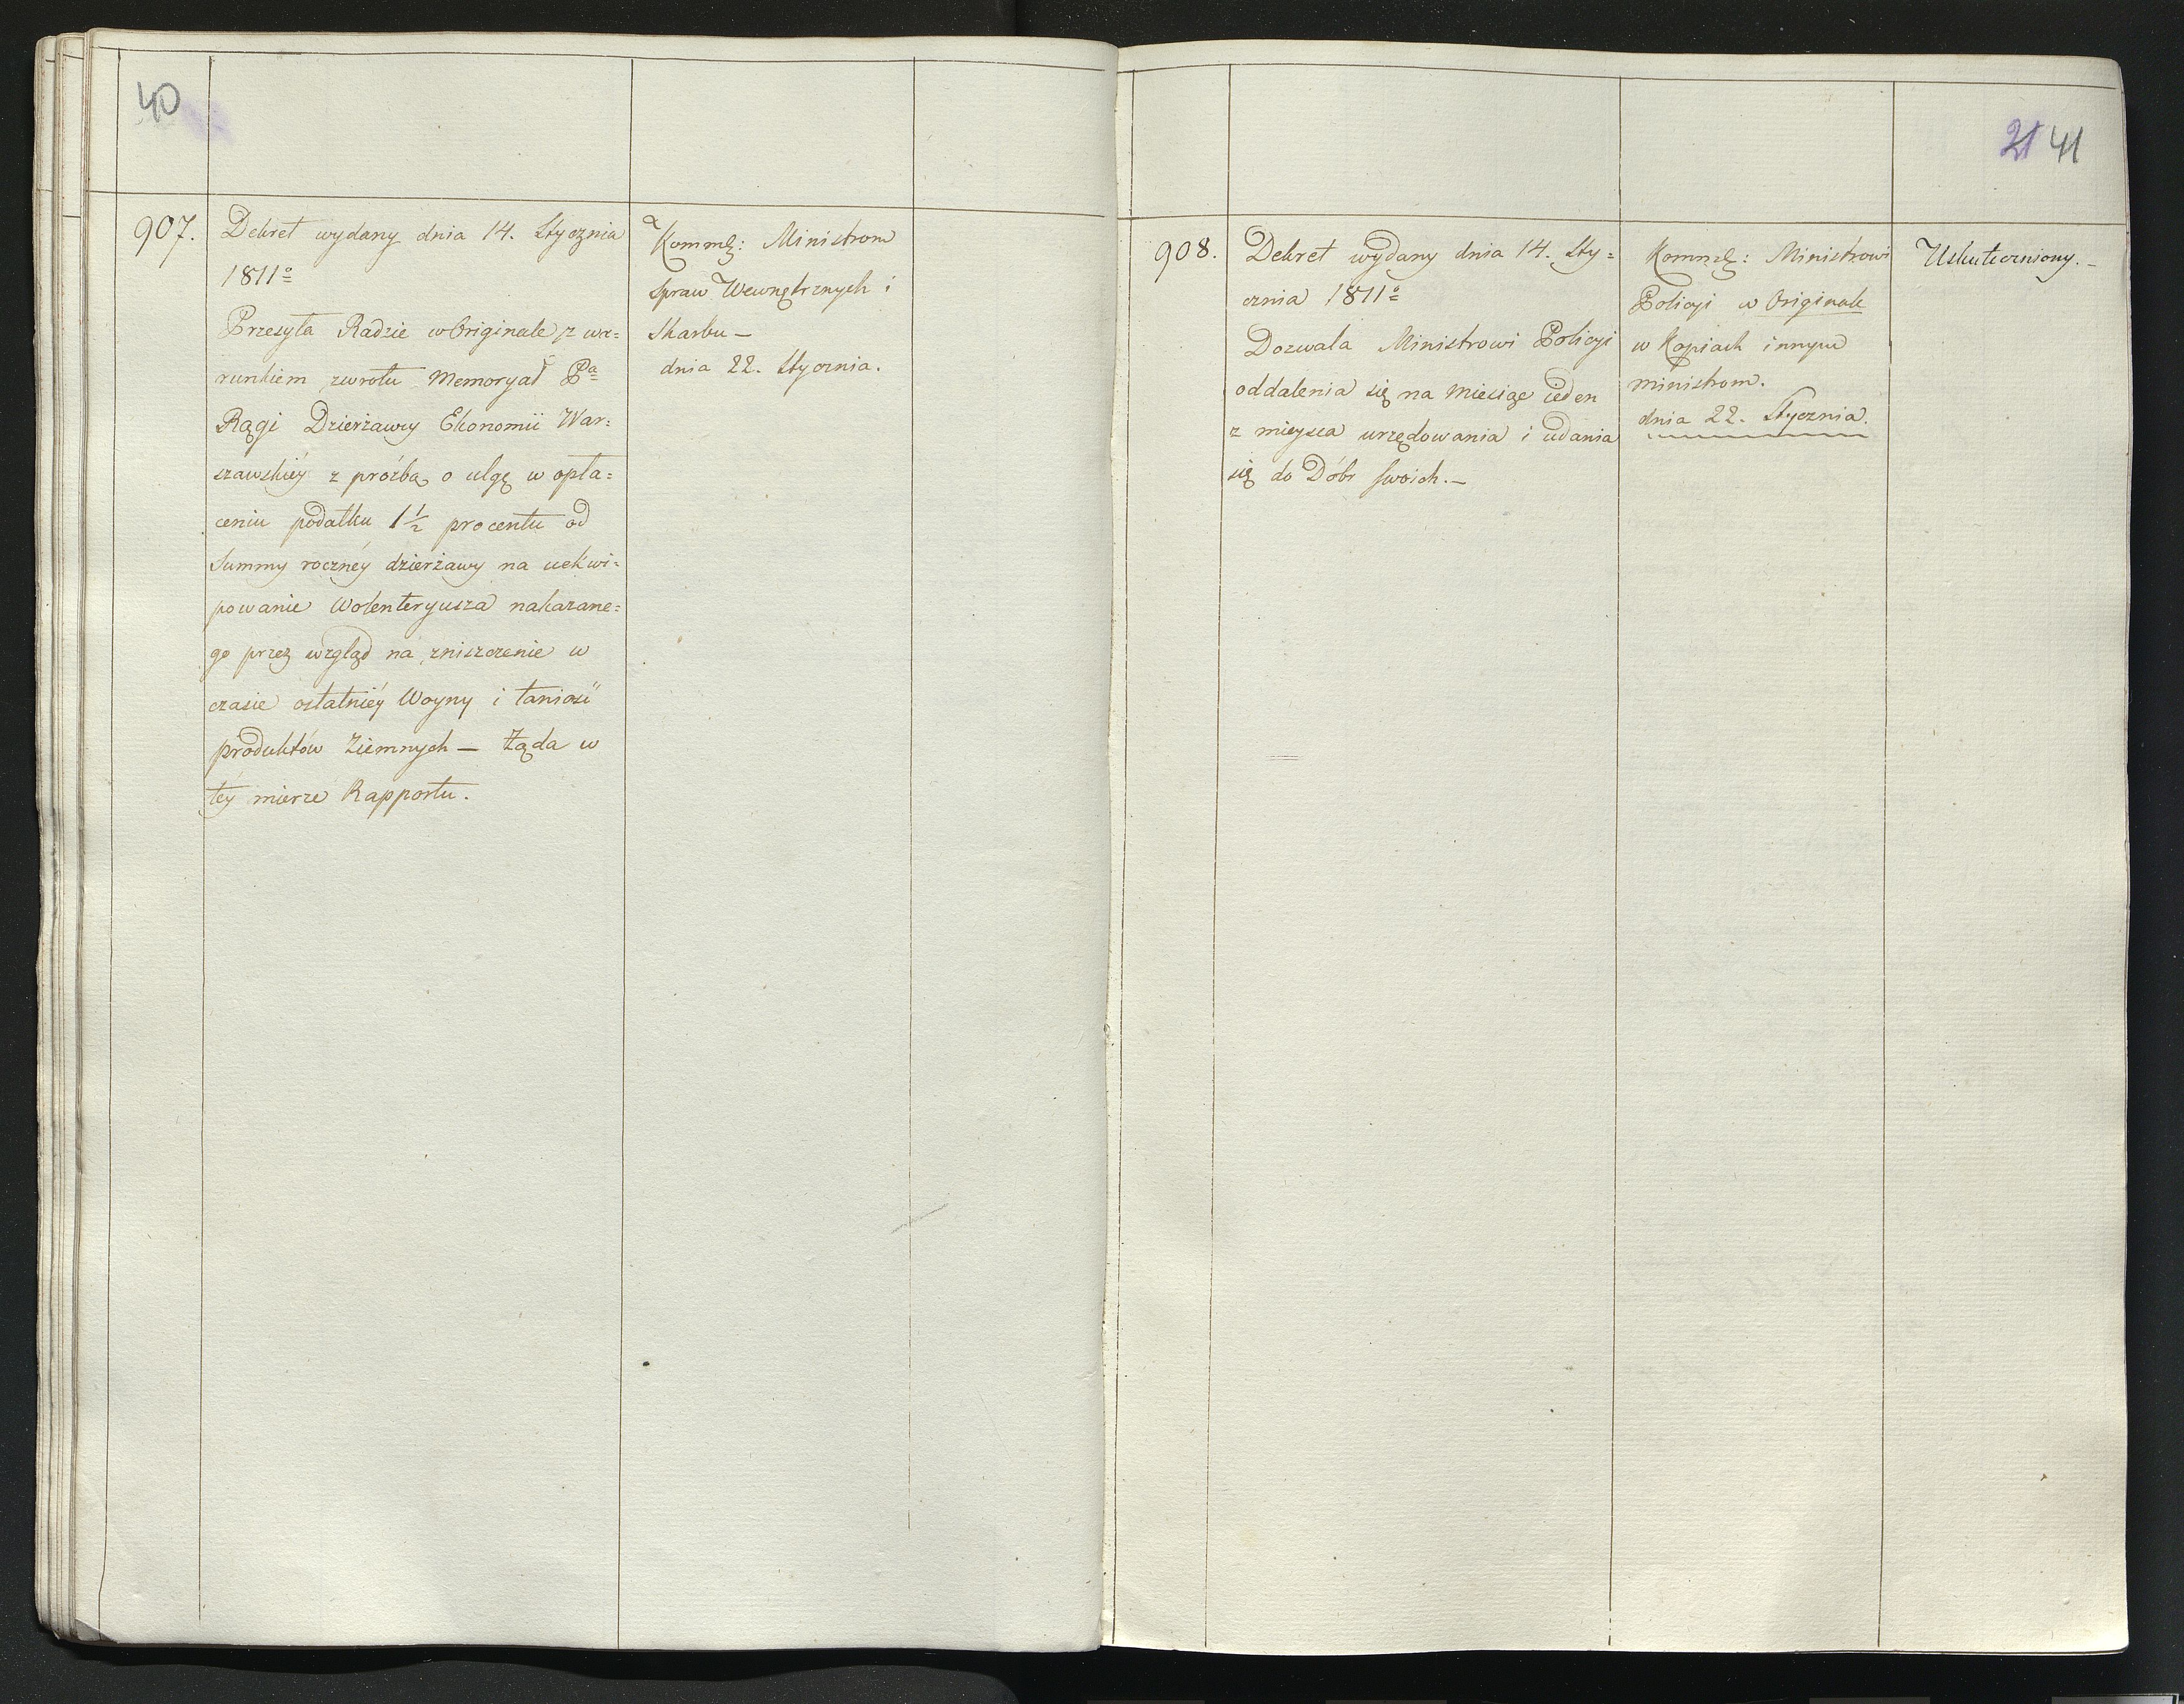 40
907.
Dekret wydany dnia 14. Stycznia
1811º
Przesyła Radzie w Originale z wa=
runkiem zwrotu Memoryał Pª
Rągi Dzierżawcy Ekonomii War=
szawskiéy z prośbą o ulgę w opła=
ceniu podatku 1½ procentu od
Summy rocznéy dzierżawy na uekwi=
powanie Wolenteryusza nakazane=
go przez wzgląd na zniszczenie w
czasie ostatniéy Woyny i taniość
produktów Ziemnych — Żąda w
téy mierze Rapportu.
Kommk: Ministrom
Spraw Wewnętrznych i
Skarbu —
dnia 22. Stycznia.
21 41
908.
Dekret wydany dnia 14. Sty=
cznia 1811º
Dozwala Ministrowi Policyi
oddalenia się na Miesiąc ieden
z mieysca urzędowania i udania
się do Dóbr swoich. —
Kommk: Ministrowi
Policyi w Originale
w Kopiach innym
ministrom.
dnia 22. Stycznia.
Uskuteczniony. —